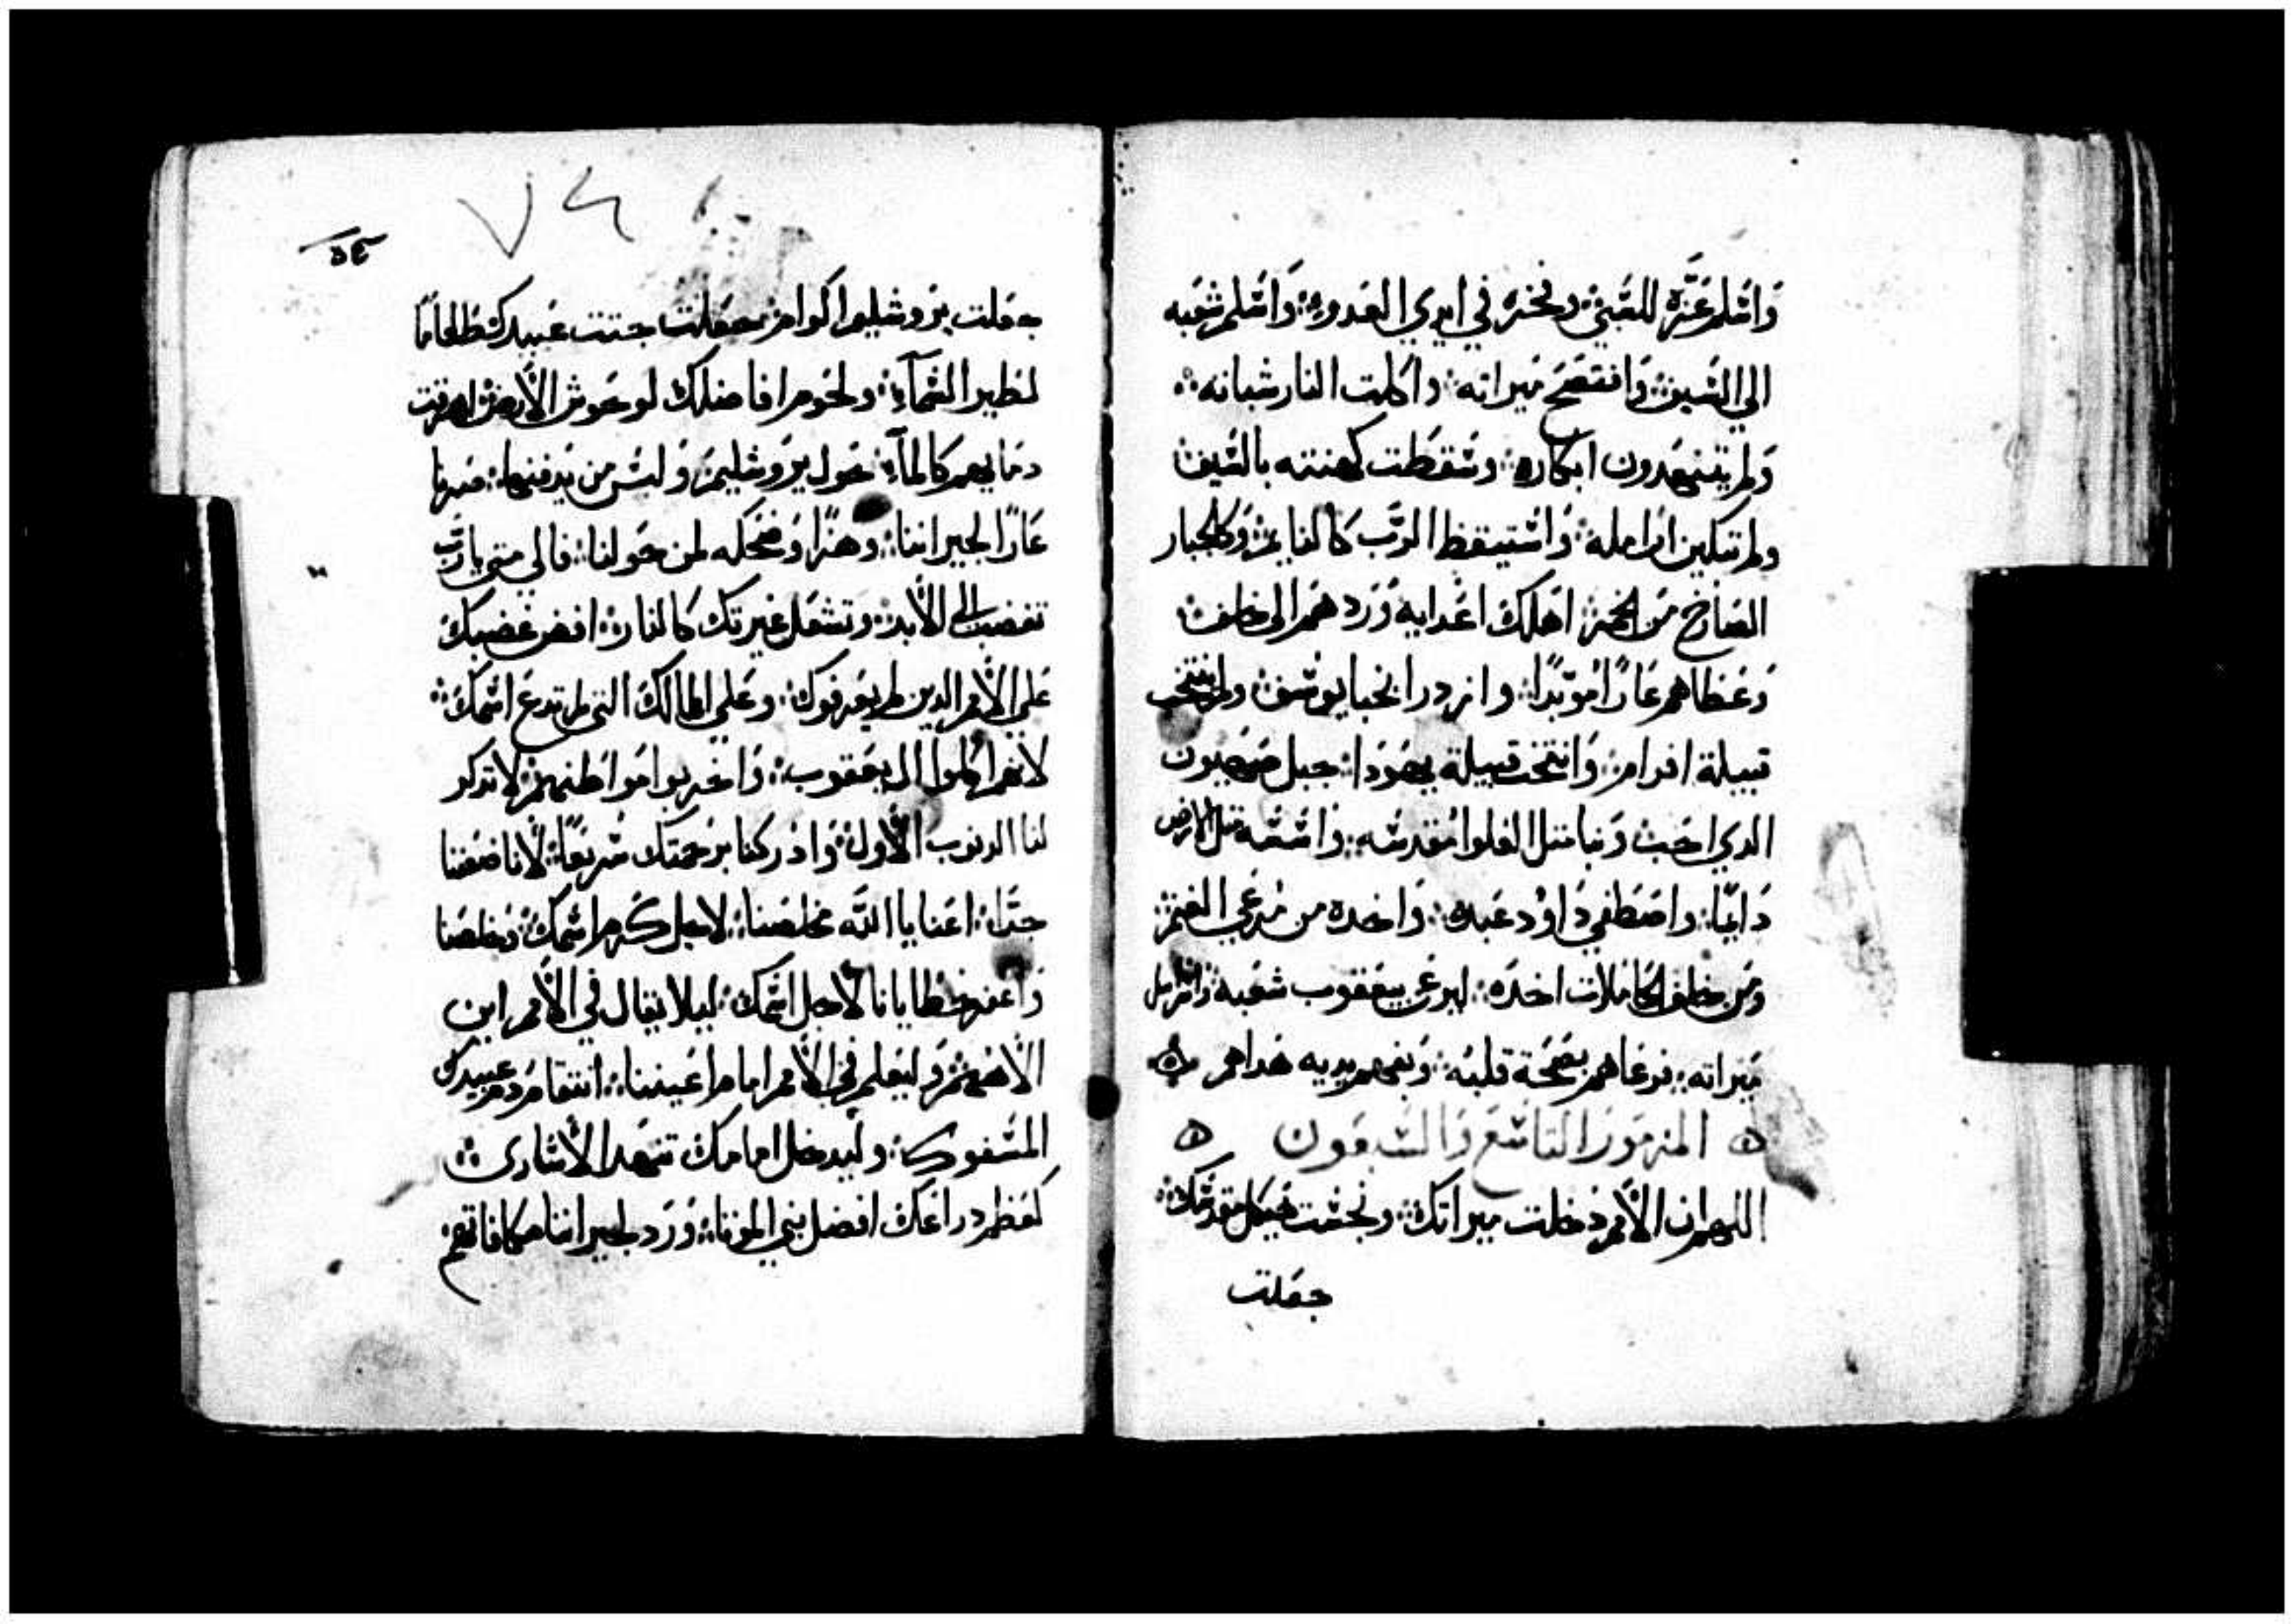 وَاسْلم عَزّه للسَبيْ وفخره في ايدي العَدوه وَاسْلم شعَبه
الي السَيف وَافتضح ميراثه واكلت النار شبانه
وَلم يتنهدون ابكاره وسْقطت كهنته بالسَيف
ولم تبكين ارامله وَاسْتيقظ الرَّب كالنايم وَكالجبار
الصَارخ مَن الخمر اهلك اعَدايه وَرَدهمَ الى خلف
وَعَطاهم عَارًا موَبّدًا وازدرا بخبا يوسْف ولم ينتخب
قبيلة افرام وَانتخب قبيلة يهَوَدا جبل صَهيون
الدي احَبْ وَبنا مثل العلوا مقدسْه وَاسْسْه مثل الارض
دَايمًا واصَطفي دَاوُد عَبده وَاخده من مَرعَي الغنم
ومَن خلف الحَاملات اخدَه ليرعَي يعَقوب شعَبه وَاسْرايل
مَيراثه فرعَاهم بصَحَة قلبَه وَبفهم يديه هَداهم
المزمَوَر التاسَع وَالسَبعَون
اللهم ان الأمم دخلت ميراتك ونجسْت هَيكل مقدسْك
جعَلت
جعَلت يرَوشليم اكوام جعَلت جتت عَبيدك طعَامًا
لطير السَمآء ولحَوم افاضلك لوحَوش الأرض اهرقت
دمَايهم كالمآء حَول يرَوشليم وَليسْ من يدفنها صَرنا
عَارًا لجيراننا وهزًا وَضحَكه لمن حَولنا فالي متي يا رَّب
تغضب الي الأبد وتشعَل غيرتك كالنار افض غَضبك
عَلي الأمم الدين لم يعَرفوك وعَلي الممالك التي لم تدعَ اسْمك
لانهم اكلوا ال يعَقوب وَاخربوا مَواطنهم لا تدكر
لنا الدنوب الأول وَادركنا برَحَمتك سْريعًا لأنا ضعَفنا
جدًا اعَنا يا اللَّه مخلصَنا لاجل كرم اسْمك وخلصَنا
وَاغفر خطايانا لاجل اسْمك ليلا يقال في الأمم اين
الاههم وَليعَلم في الأمم امام اعَيننا انتقام دم عَبيدك
المسْفوك وليدخل امامك تنهَد الأسْارى
كعَظم دراعَك افضل بني الموتا وَرَد لجيراننا مكافاتهم